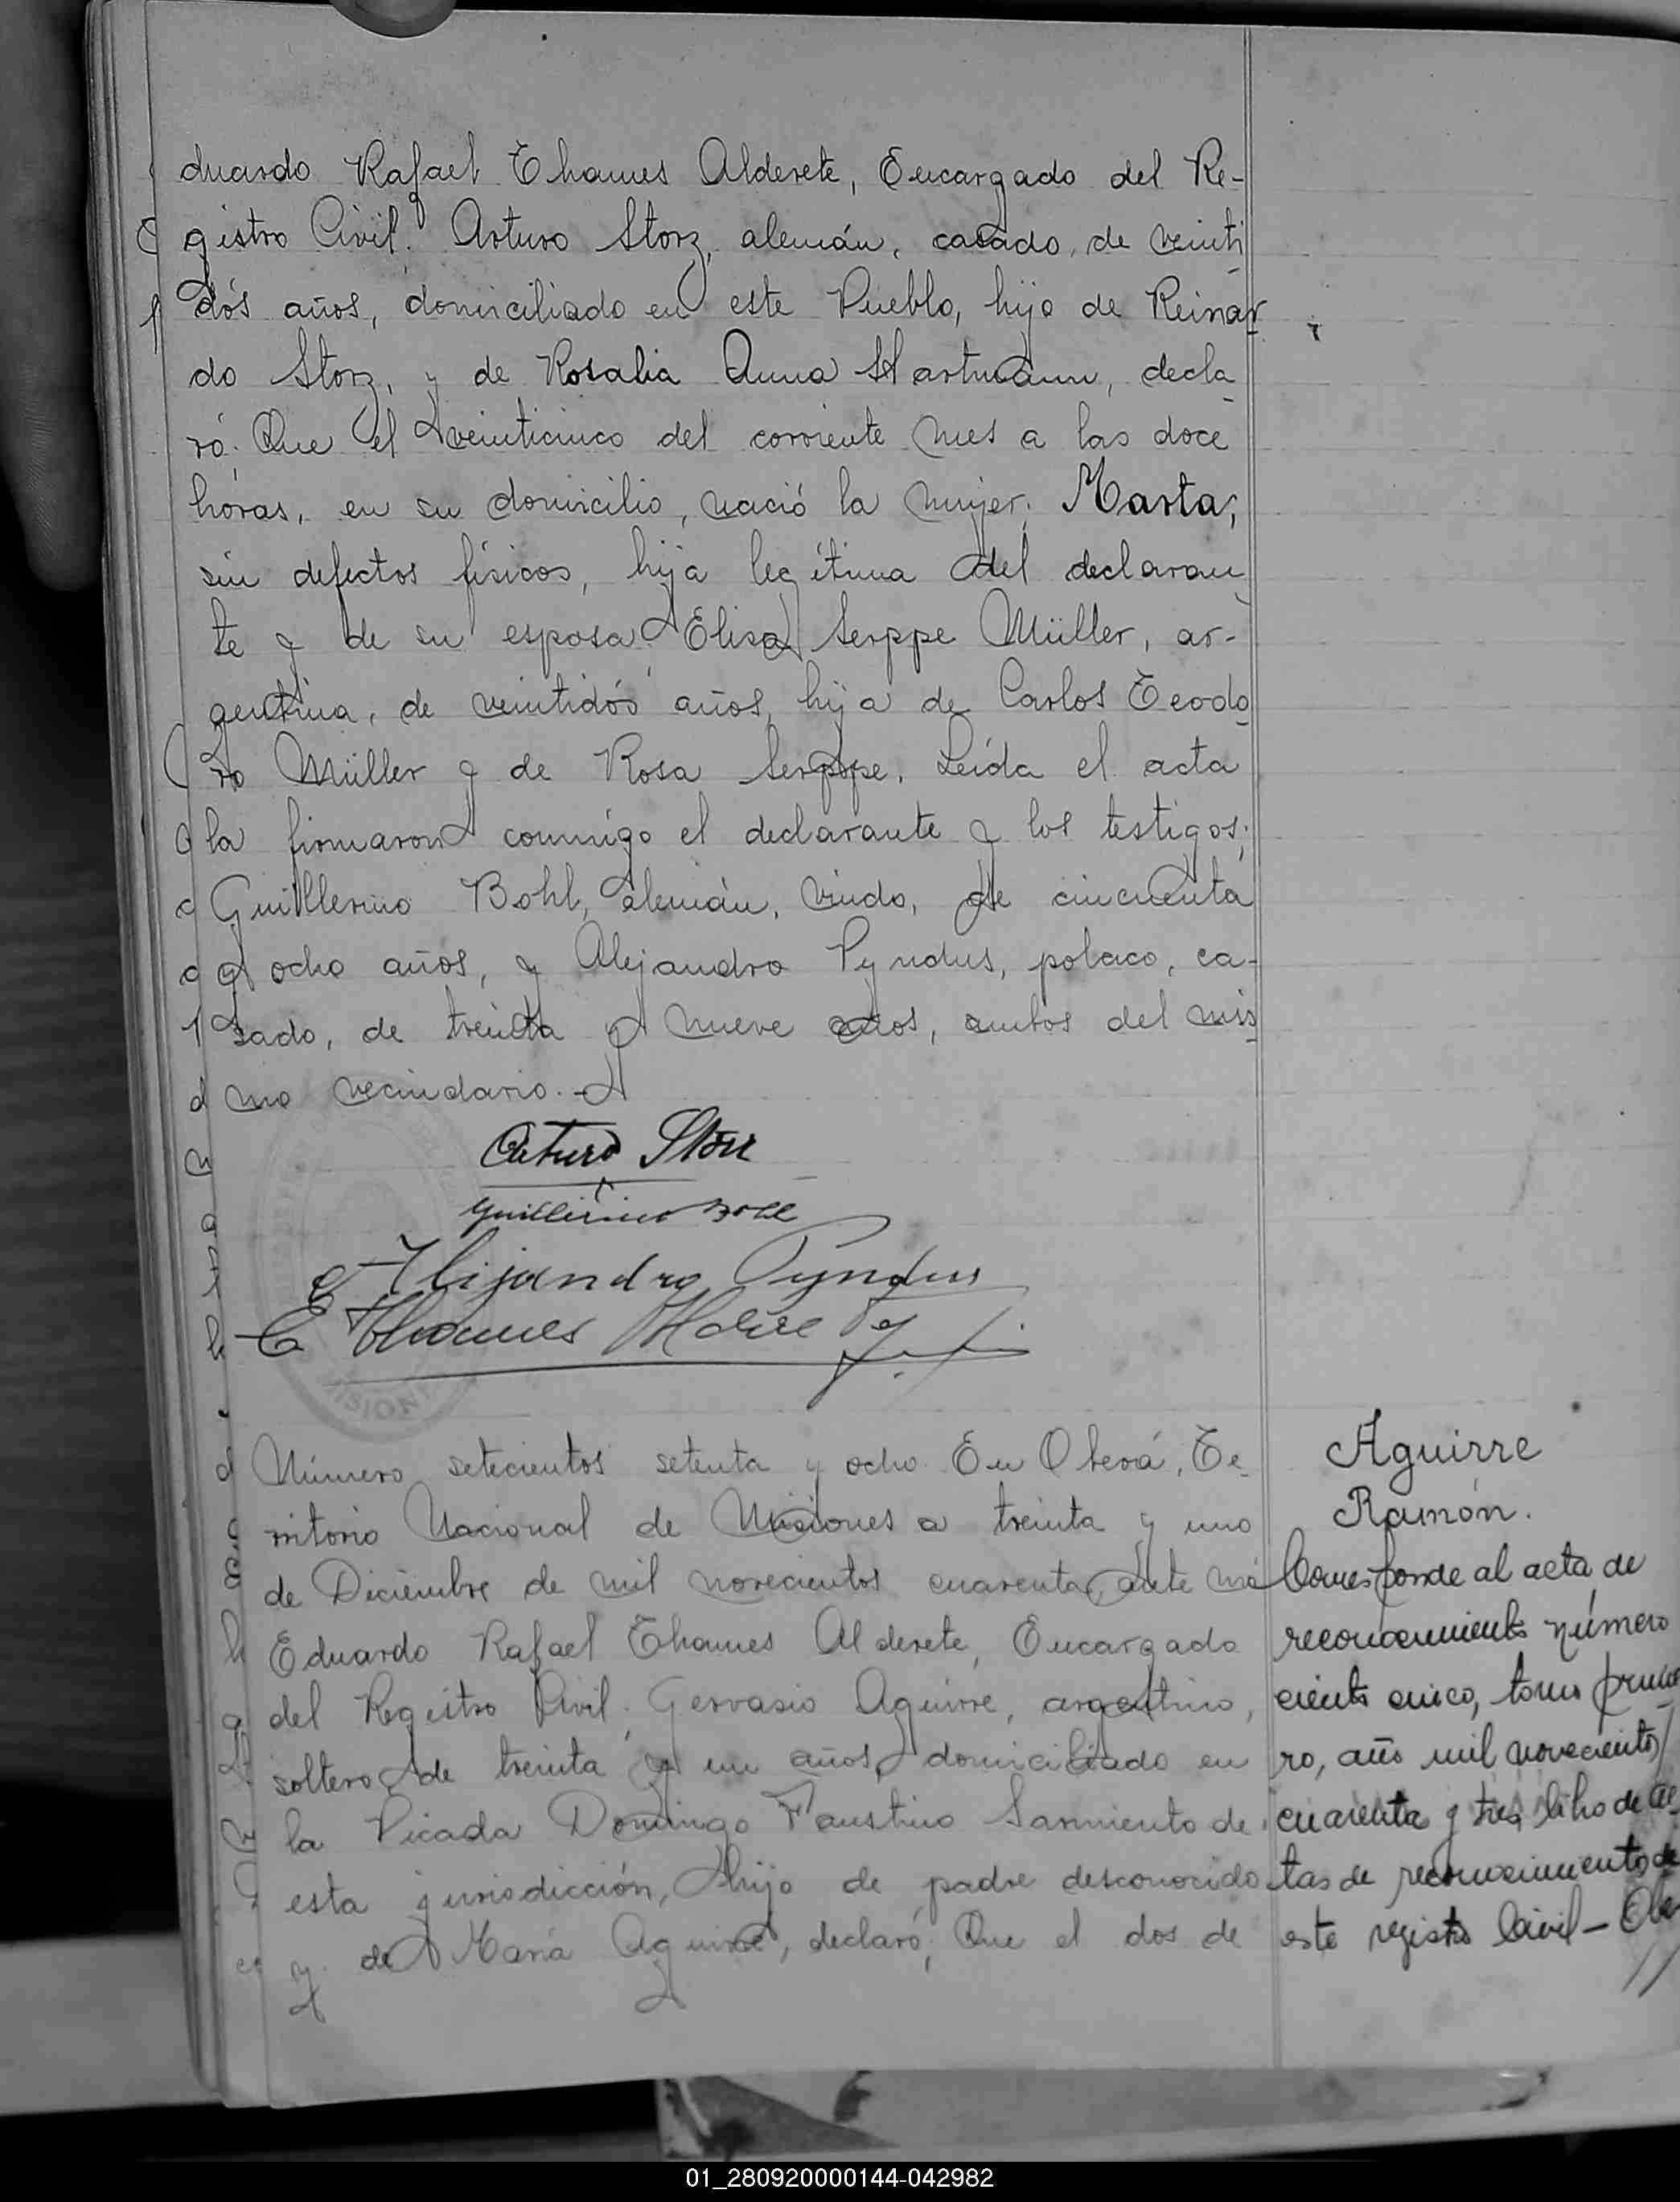 duardo Rafael Thames Alderete, Encargado del Re-
gistro Civil. Arturo Storz, alemán, casado, de veinti
dós años, domiciliado en este Pueblo, hijo de Reinar
do Storz, y de Rosalia Anna Hartmann, decla
ró: Que el veinticinco del corriente mes a las doce
horas, en su domicilio, nació la mujer: Marta,
sin defectos físicos, hija legítima del declaran
te y de su esposa Elisa Serppe Müller, ar-
gentina, de veintidós años, hija de Carlos Teodo
ro Müller y de Rosa Serppe. Leída el acta
la firmaron conmigo el declarante y los testigos;
Guillermo Bohl, alemán, viudo, de cincuenta
y ocho años, y Alejandro Pyndus, polaco, ca-
sado, de treinta y nueve años, ambos del mis
mo vecindario.-
Arturo Storz
Guillermo Bohl
Alijandro Pyndus
E Thames Alderete
Número setecientos setenta y ocho. En Oberá, Te-
rritorio Nacional de Misiones a treinta y uno
de Diciembre de mil novecientos cuarenta, ante mí
Eduardo Rafael Thames Alderete, Encargado
del Registro Civil: Gervasio Aguirre, argentino,
soltero, de treinta y un años, domiciliado en
la Picada Domingo Faustino Sarmiento de
esta jurisdicción, hijo de padre desconocido
y de María Aguirre, declaró; Que el dos de
Aguirre
Ramón.
Corresponde al acta de
reconocimiento número
ciento cinco, tomo prime
ro, año mil novecientos
cuarenta y tres, libro de ac
tas de reconocimiento de
este registro Civil - Obe
//
01_280920000144-042982